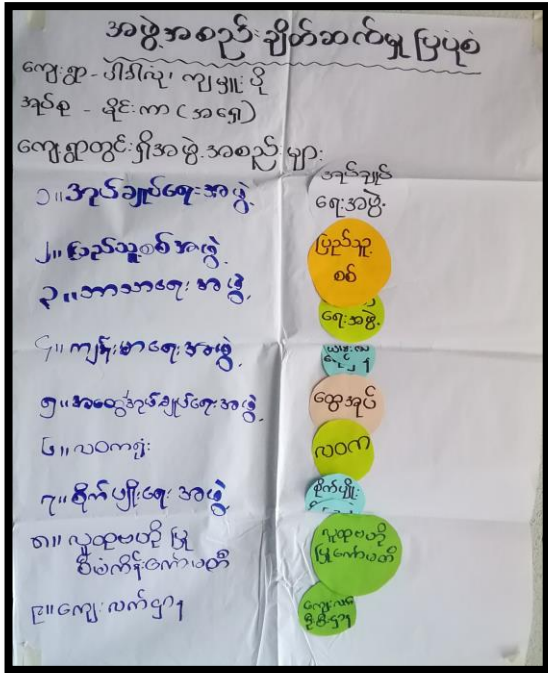 အဖွဲ့အစည်းချိတ်ဆက်မှုပြပုံစံ
ကျေးရွာ - ပါဒါလုံ၊ ကျမှူးပို
အုပ်စု - မိုင်းကာ (အရှေ့)
ကျေးရွာတွင်းရှိအဖွဲ့အစည်းများ
၁။ အုပ်ချုပ်ရေးအဖွဲ့
၂။ ပြည်သူ့စစ်အဖွဲ့
၃။ ဘာသာရေးအဖွဲ့
၄။ ကျန်းမာရေးအဖွဲ့
၅။ အထွေအုပ်ချုပ်ရေးအဖွဲ့
၆။ လဝကရုံး
၇။ စိုက်ပျိုးရေးအဖွဲ့
၈။ လူထုဗဟိုပြု
စီမံကိန်းကော်မတီ
၉။ ကျေးလက်ဌာန
အုပ်ချုပ်
ရေးအဖွဲ့
ပြည်သူ့
စစ်
ရေးအဖွဲ့
ထွေအုပ်
လဝက
စိုက်ပျိုး
လူထုဗဟို
ပြုကော်မတီ